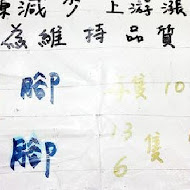 減少上游漲
為維持品質
腳 每隻10
腳 13隻
6